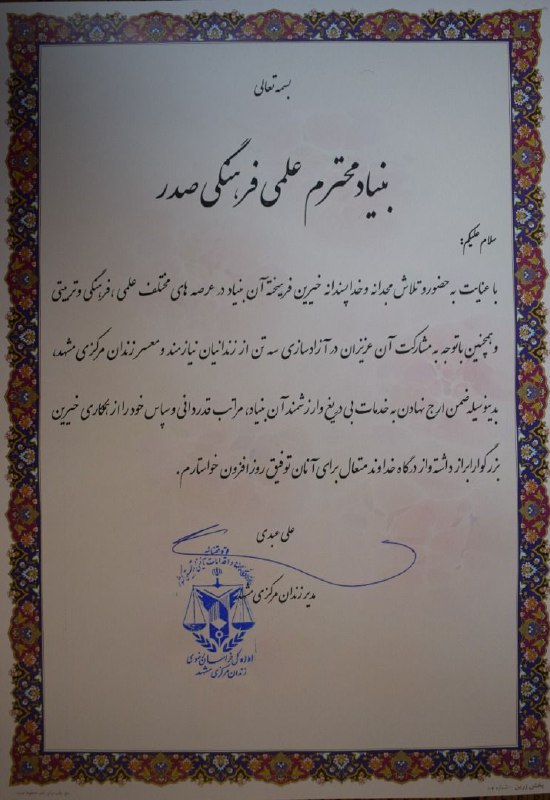 بسمه تعالی
بنیاد محترم علمی فرهنگی صدر
سلام علیکم؛
با عنایت به حضور و تلاش مجدانه و خداپسندانه خیرین فرهیخته آن بنیاد در عرصه های مختلف علمی ، فرهنگی و تربیتی
و همچنین با توجه به مشارکت آن عزیزان در آزادسازی سه تن از زندانیان نیازمند و معسر زندان مرکزی مشهد،
بدینوسیله ضمن ارج نهادن به خدمات بی دریغ و ارزشمند آن بنیاد، مراتب قدردانی و سپاس خود را از همکاری خیرین
بزرگوار ابراز داشته و از درگاه خداوند متعال برای آنان توفیق روز افزون خواستارم .
علی عبدی
مدیر زندان مرکزی مشهد
قوه قضائیه
اداره کل خراسان رضوی
زندان مرکزی مشهد